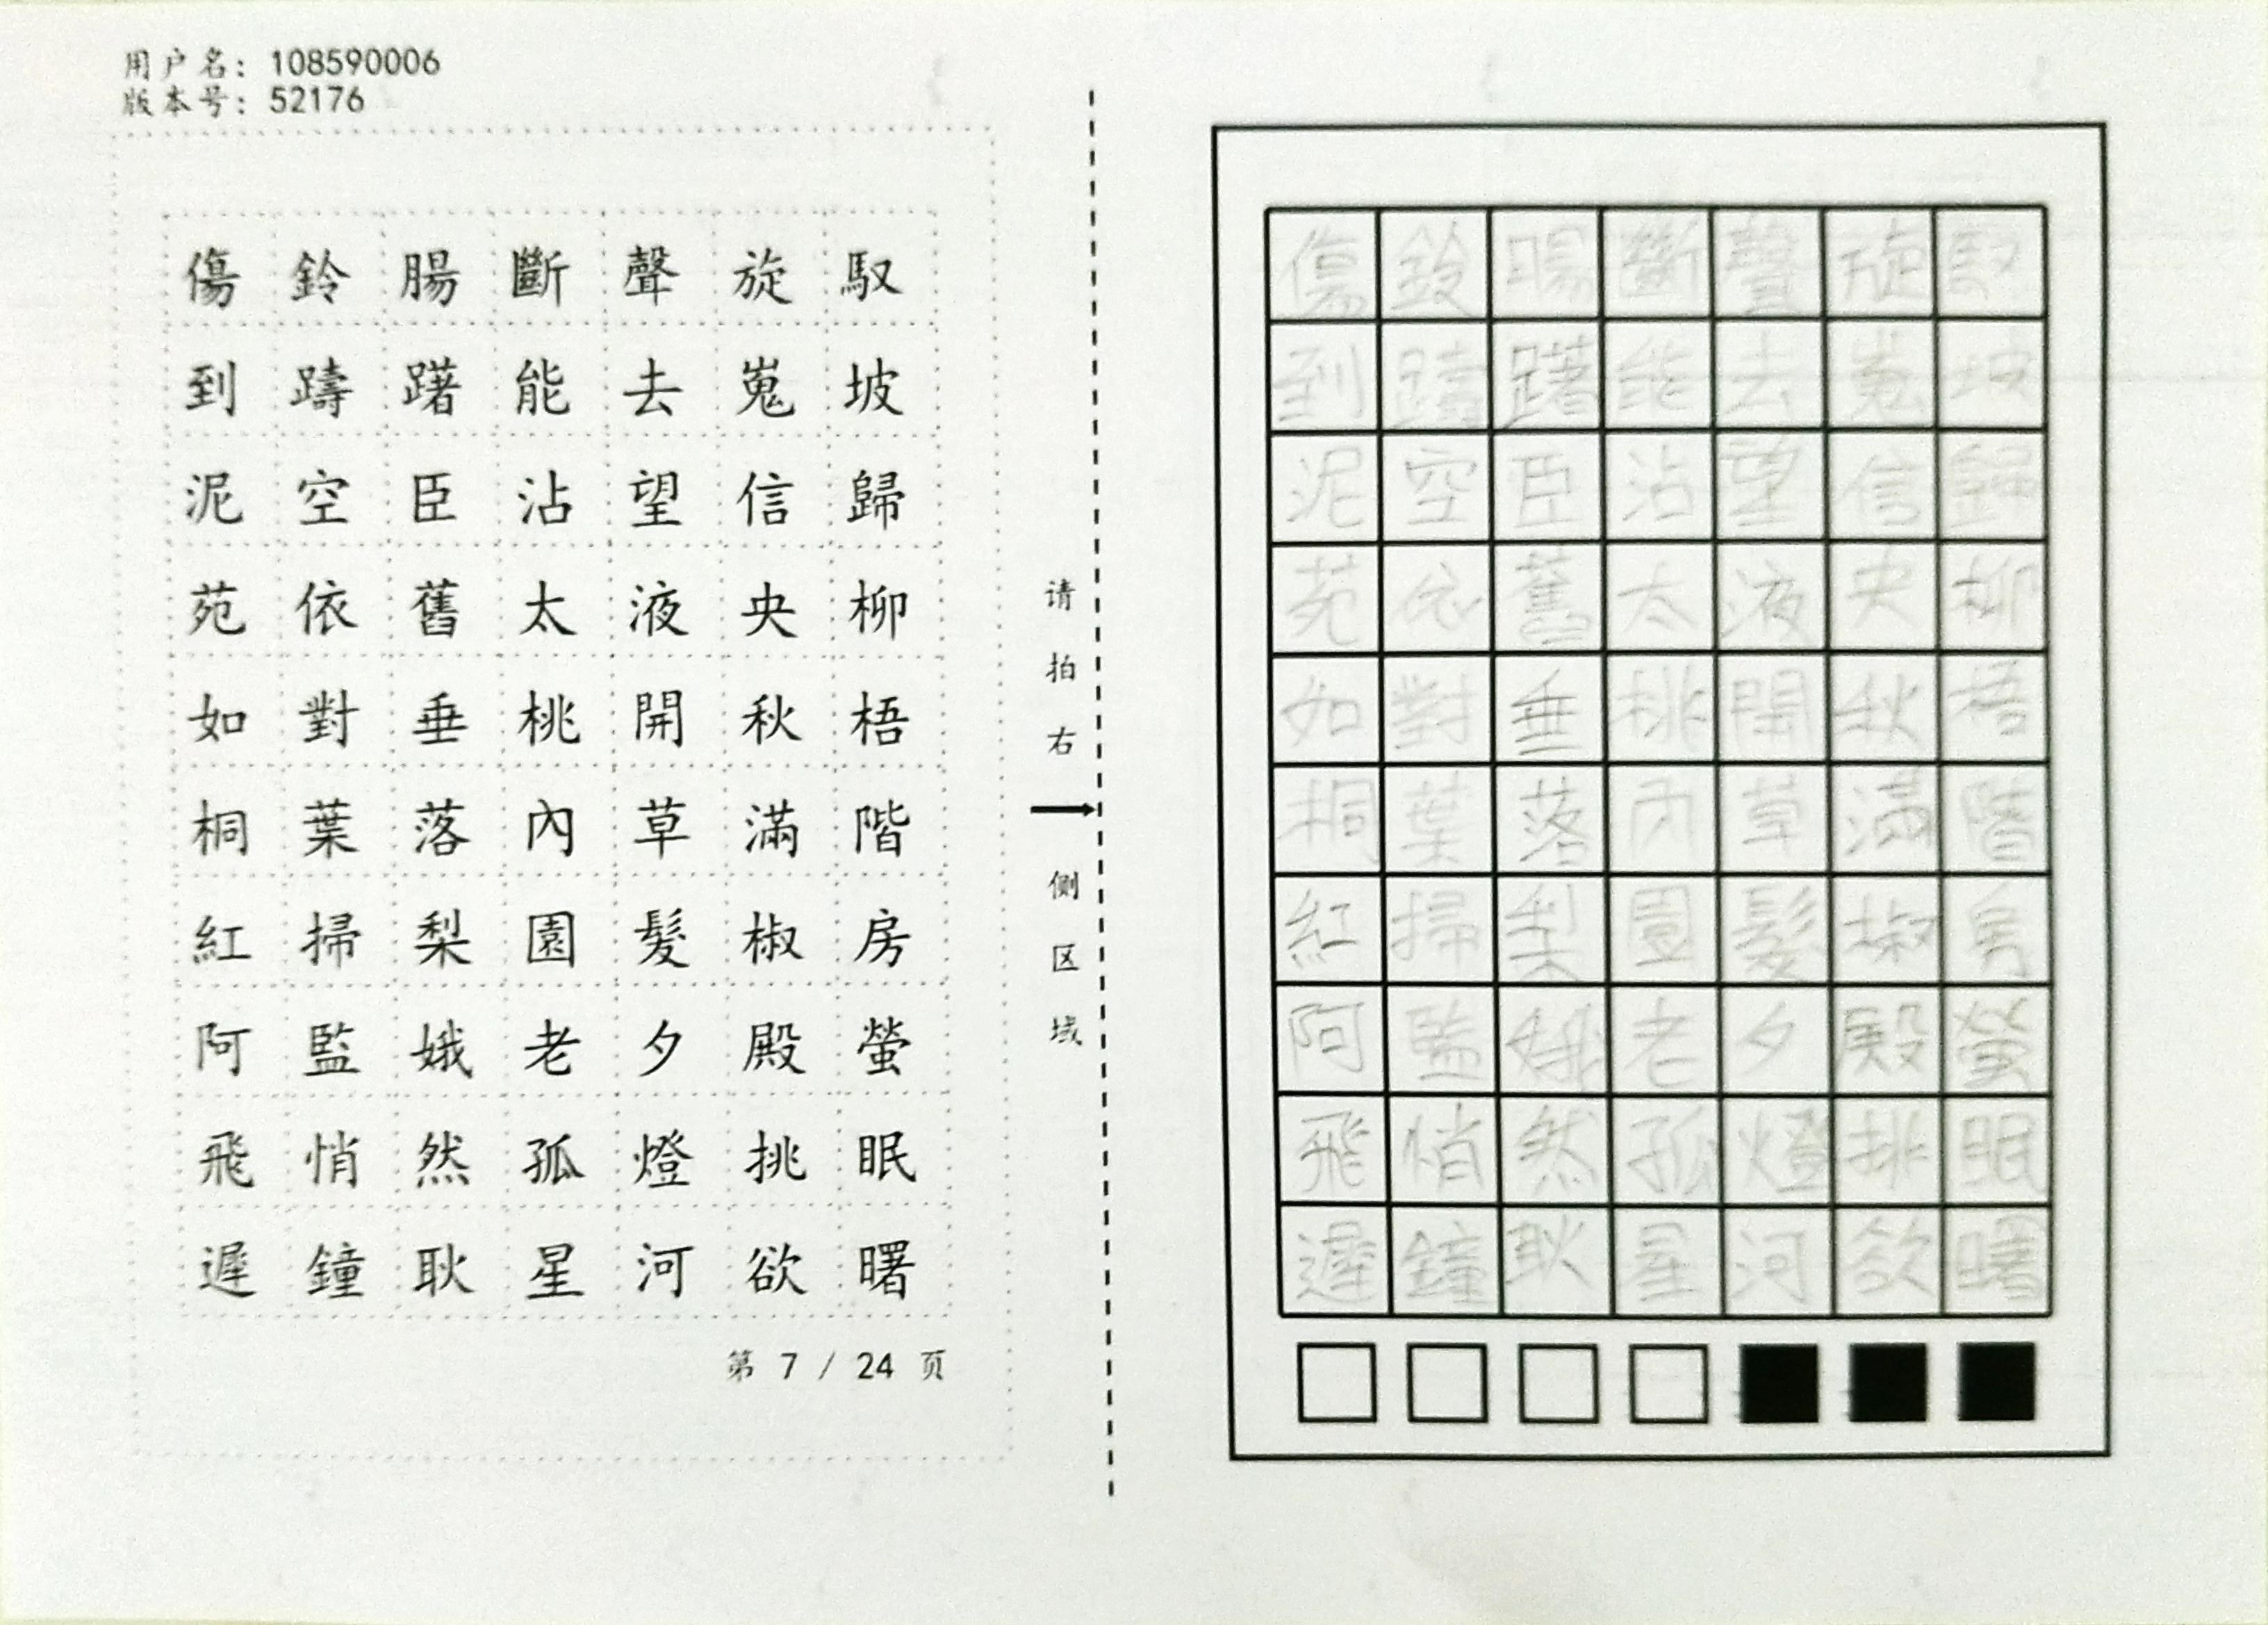 用户名: 108590006
版本号: 52176
傷鈴腸斷聲旋馭
到躊躇能去嵬坡
泥空臣沾望信歸
苑依舊太液央柳
如對垂桃開秋梧
桐葉落內草滿階
紅掃梨園髮椒房
阿監娥老夕殿螢
飛悄然孤燈挑眠
遲鐘耿星河欲曙
第 7 / 24 页
请拍右侧区域
傷鈴腸斷聲旋馭
到躊躇能去嵬坡
泥空臣沾望信歸
苑依舊太液央柳
如對垂桃開秋梧
桐葉落內草滿階
紅掃梨園髮椒房
阿監娥老夕殿螢
飛悄然孤燈挑眠
遲鐘耿星河欲曙